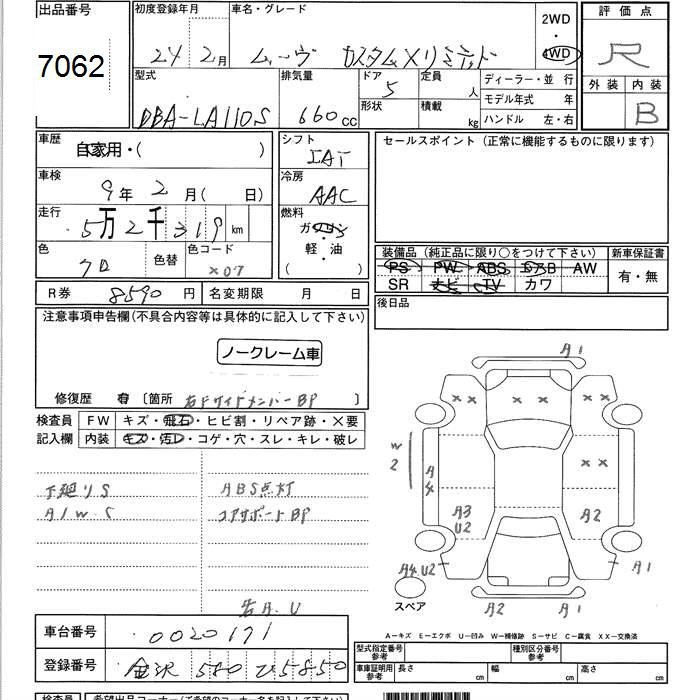 出品番号 初度登録年月 車名・グレード 2WD 評価点
7062 24 2月 ムーヴ カスタムXリミテッド ・ 4WD R
型式 排気量 ドア 定員 ディーラー・並 行 外装 内装
DBA-LA110S 660cc 5 人 モデル年式 年 B
形状 積載 kg ハンドル 左・右
車歴 自家用・( ) シフト IAT セールスポイント（正常に機能するものに限ります）
車検 9年 2月( 日) 冷房 AAC
走行 5万2千319km 燃料 ガソリン
・
軽・油
( )
色 クロ 色替 色コード X07 装備品（純正品に限り○をつけて下さい） 新車保証書
PS PW ABS エアB AW 有・無
SR ナビ TV カワ
R券 8590円 名変期限 月 日 後日品
注意事項申告欄(不具合内容等は具体的に記入して下さい)
ノークレーム車
修復歴 有 〔箇所 右Fサイドメンバー BP 〕
検査員 FW キズ・飛石・ヒビ割・リペア跡・×要
記入欄 内装 キズ・汚レ・コゲ・穴・スレ・キレ・破レ
下廻りS ABS点灯
A1W.S コアサポートBP
右A.U
A1
× × × × × ×
W2 A4 × ×
A3 U2 A2
A4.U2 A1
スペア A2 A1
A－キズ E－エクボ U－凹み W－補修跡 S－サビ C－腐食 XX－交換済
車台番号 0020171
登録番号 金沢 580 ひ5850
型式指定番号 参考 種別区分番号 参考
車庫証明用 参考 長さ cm 幅 cm 高さ cm
検査員 希望出品コーナー(ご希望のコーナー名を記入して下さい)